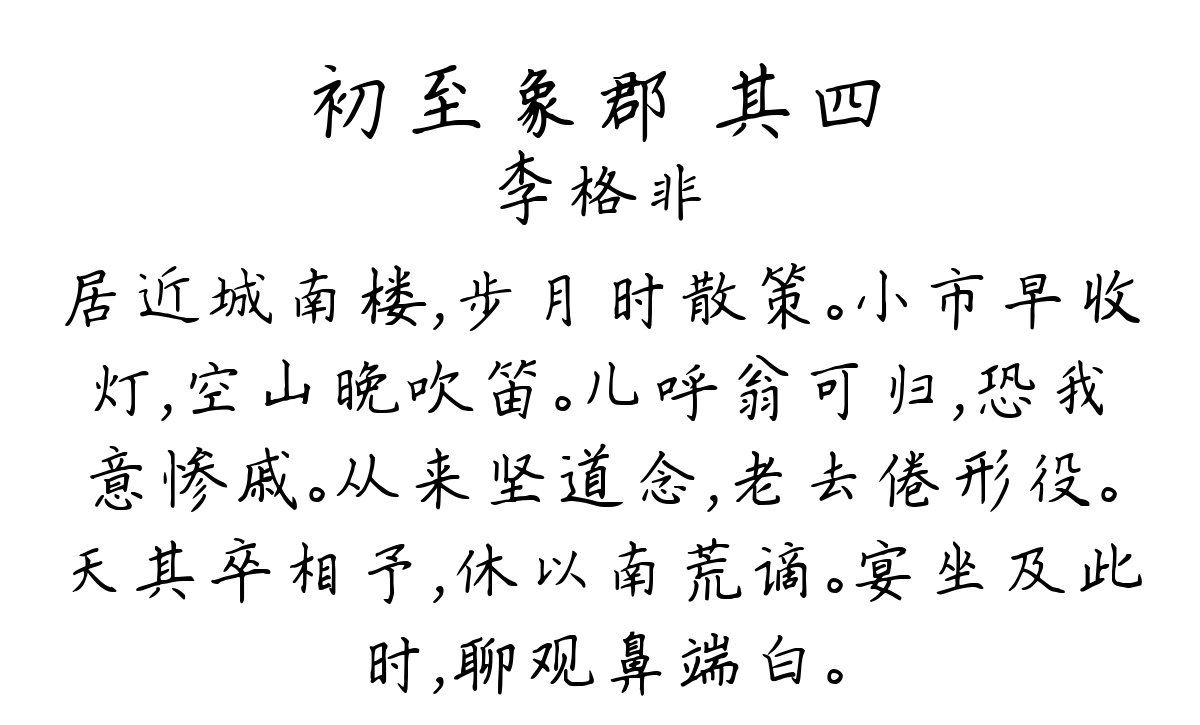 初至象郡 其四
李格非
居近城南楼,步月时散策。小市早收
灯,空山晚吹笛。儿呼翁可归,恐我
意惨戚。从来坚道念,老去倦形役。
天其卒相予,休以南荒谪。宴坐及此
时,聊观鼻端白。